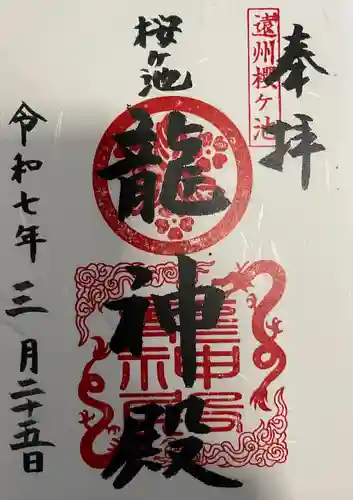 奉拝
遠州櫻ヶ池
桜ヶ池
龍神殿
令和七年三月二十五日